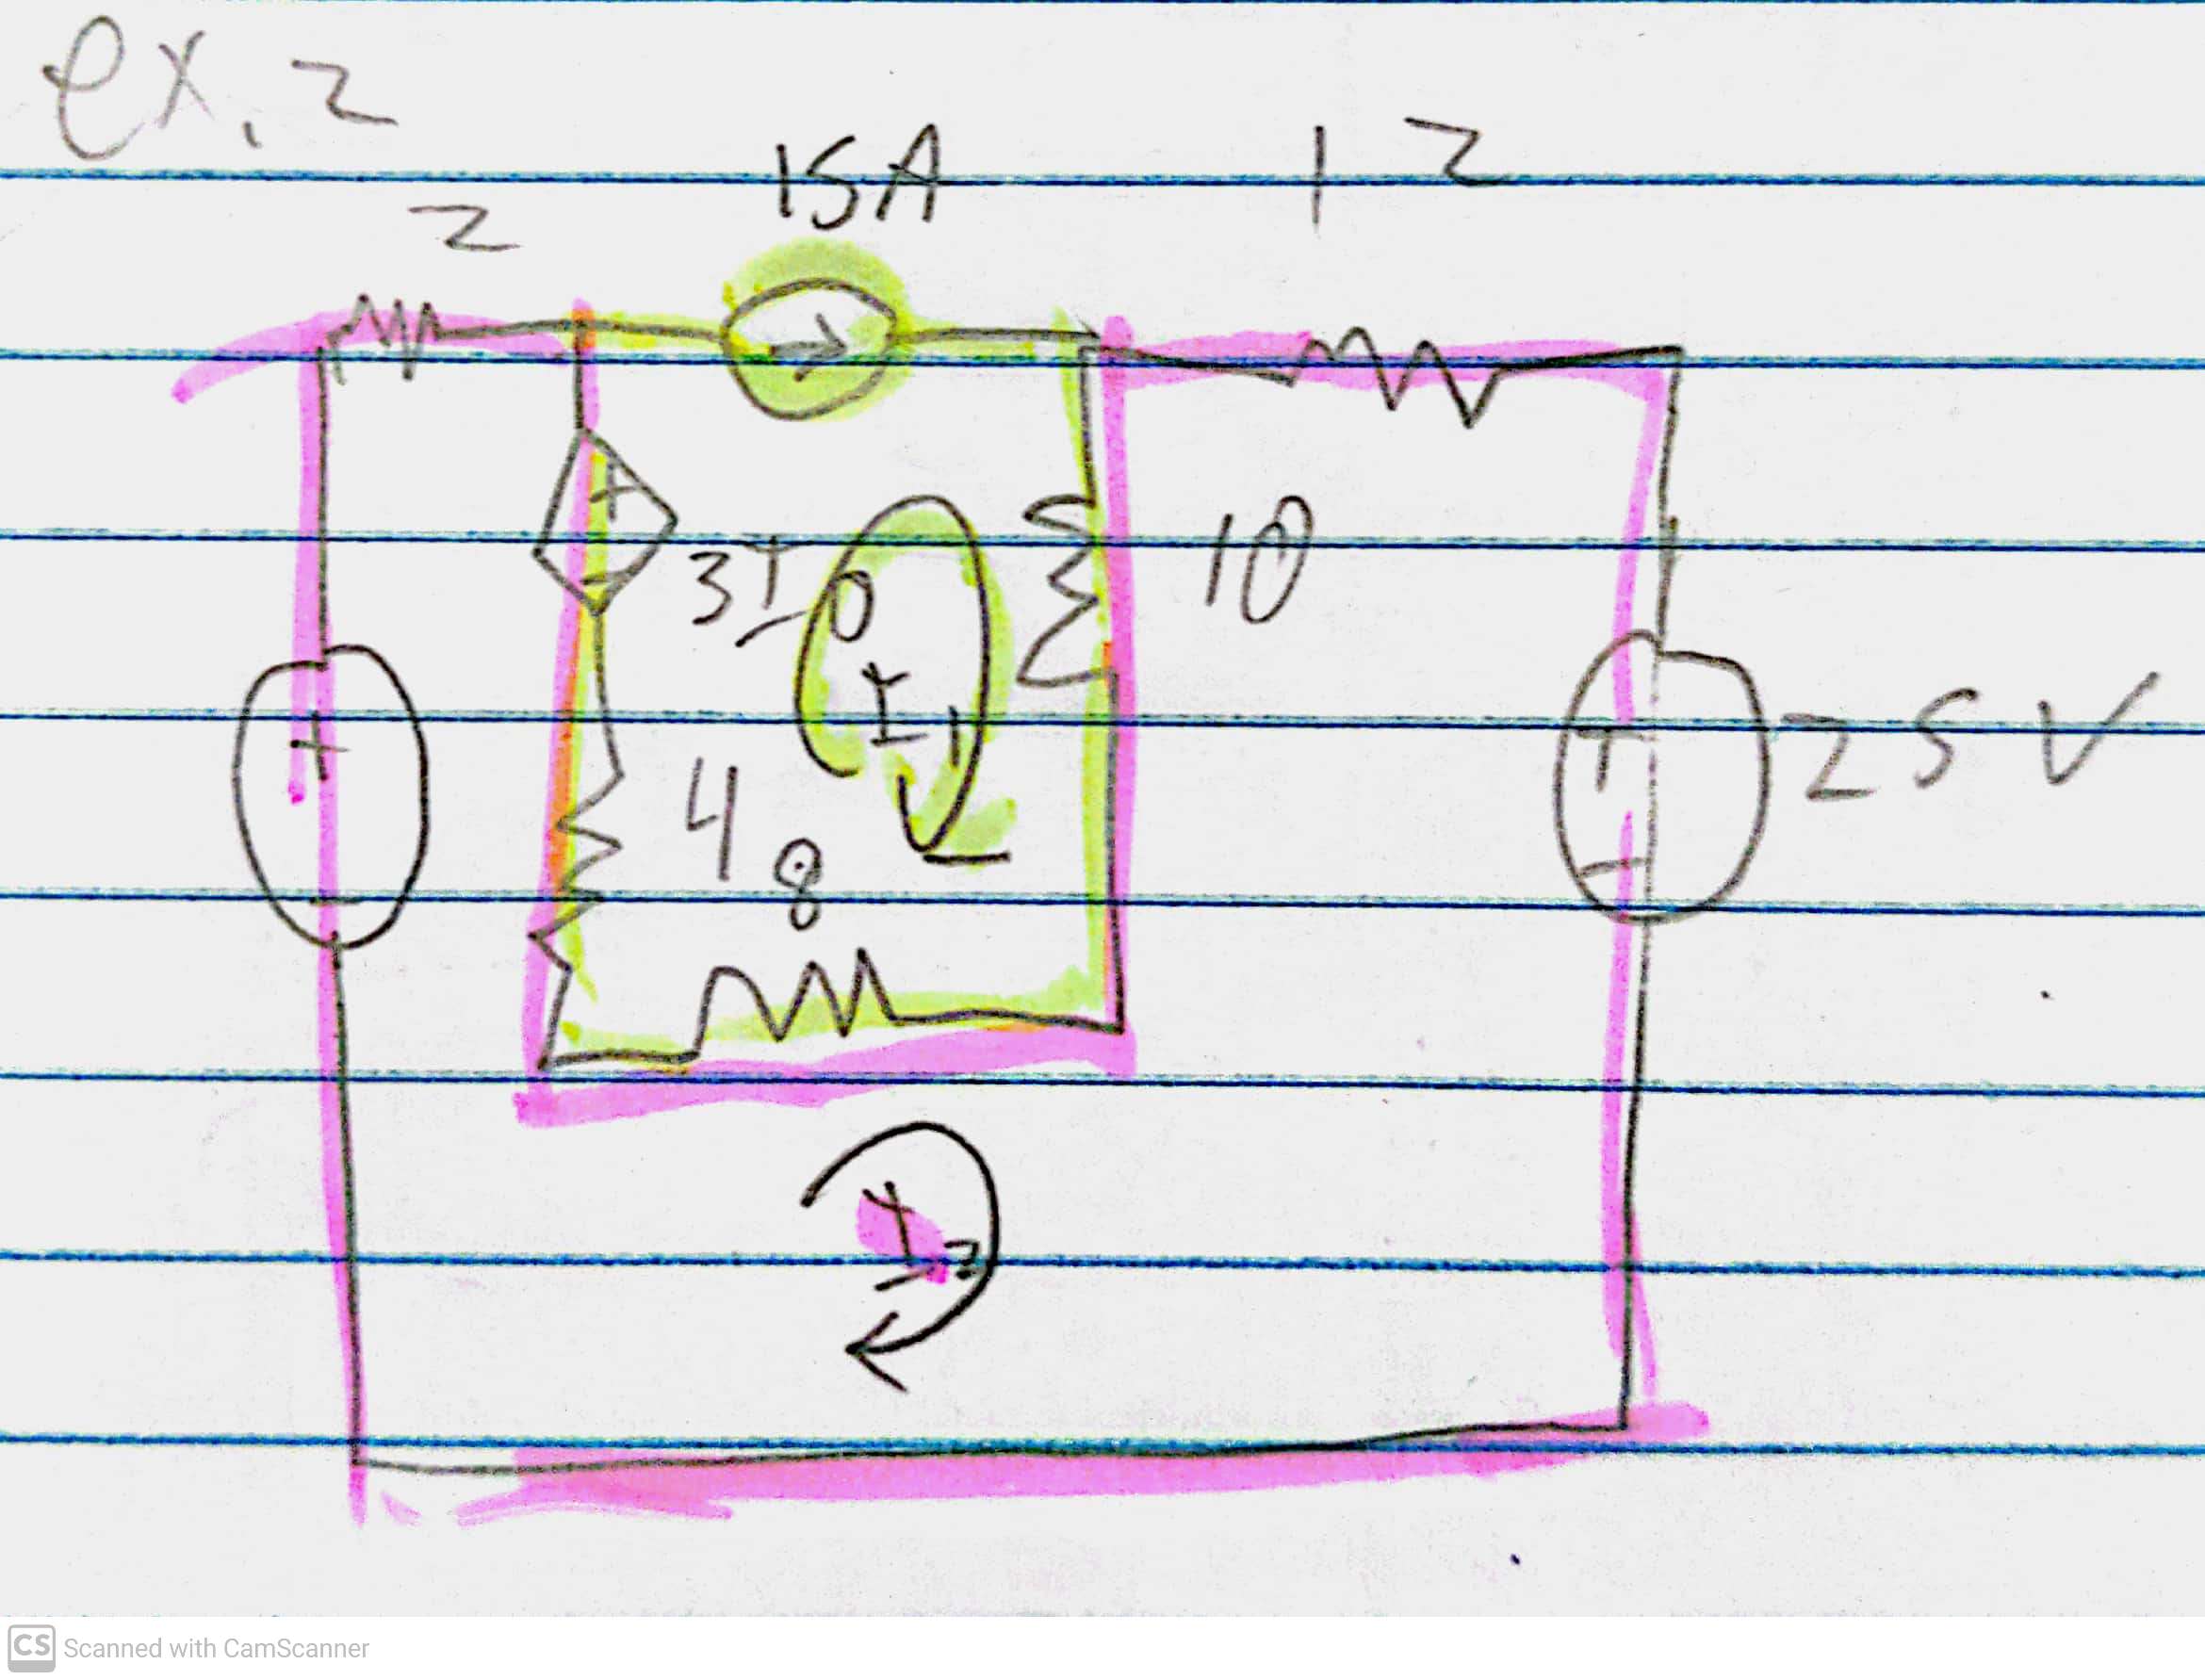 ex. 2
15A
12
2
+
3I0
10
-
I1
+
+
25V
4
8
-
-
I2
CS Scanned with CamScanner